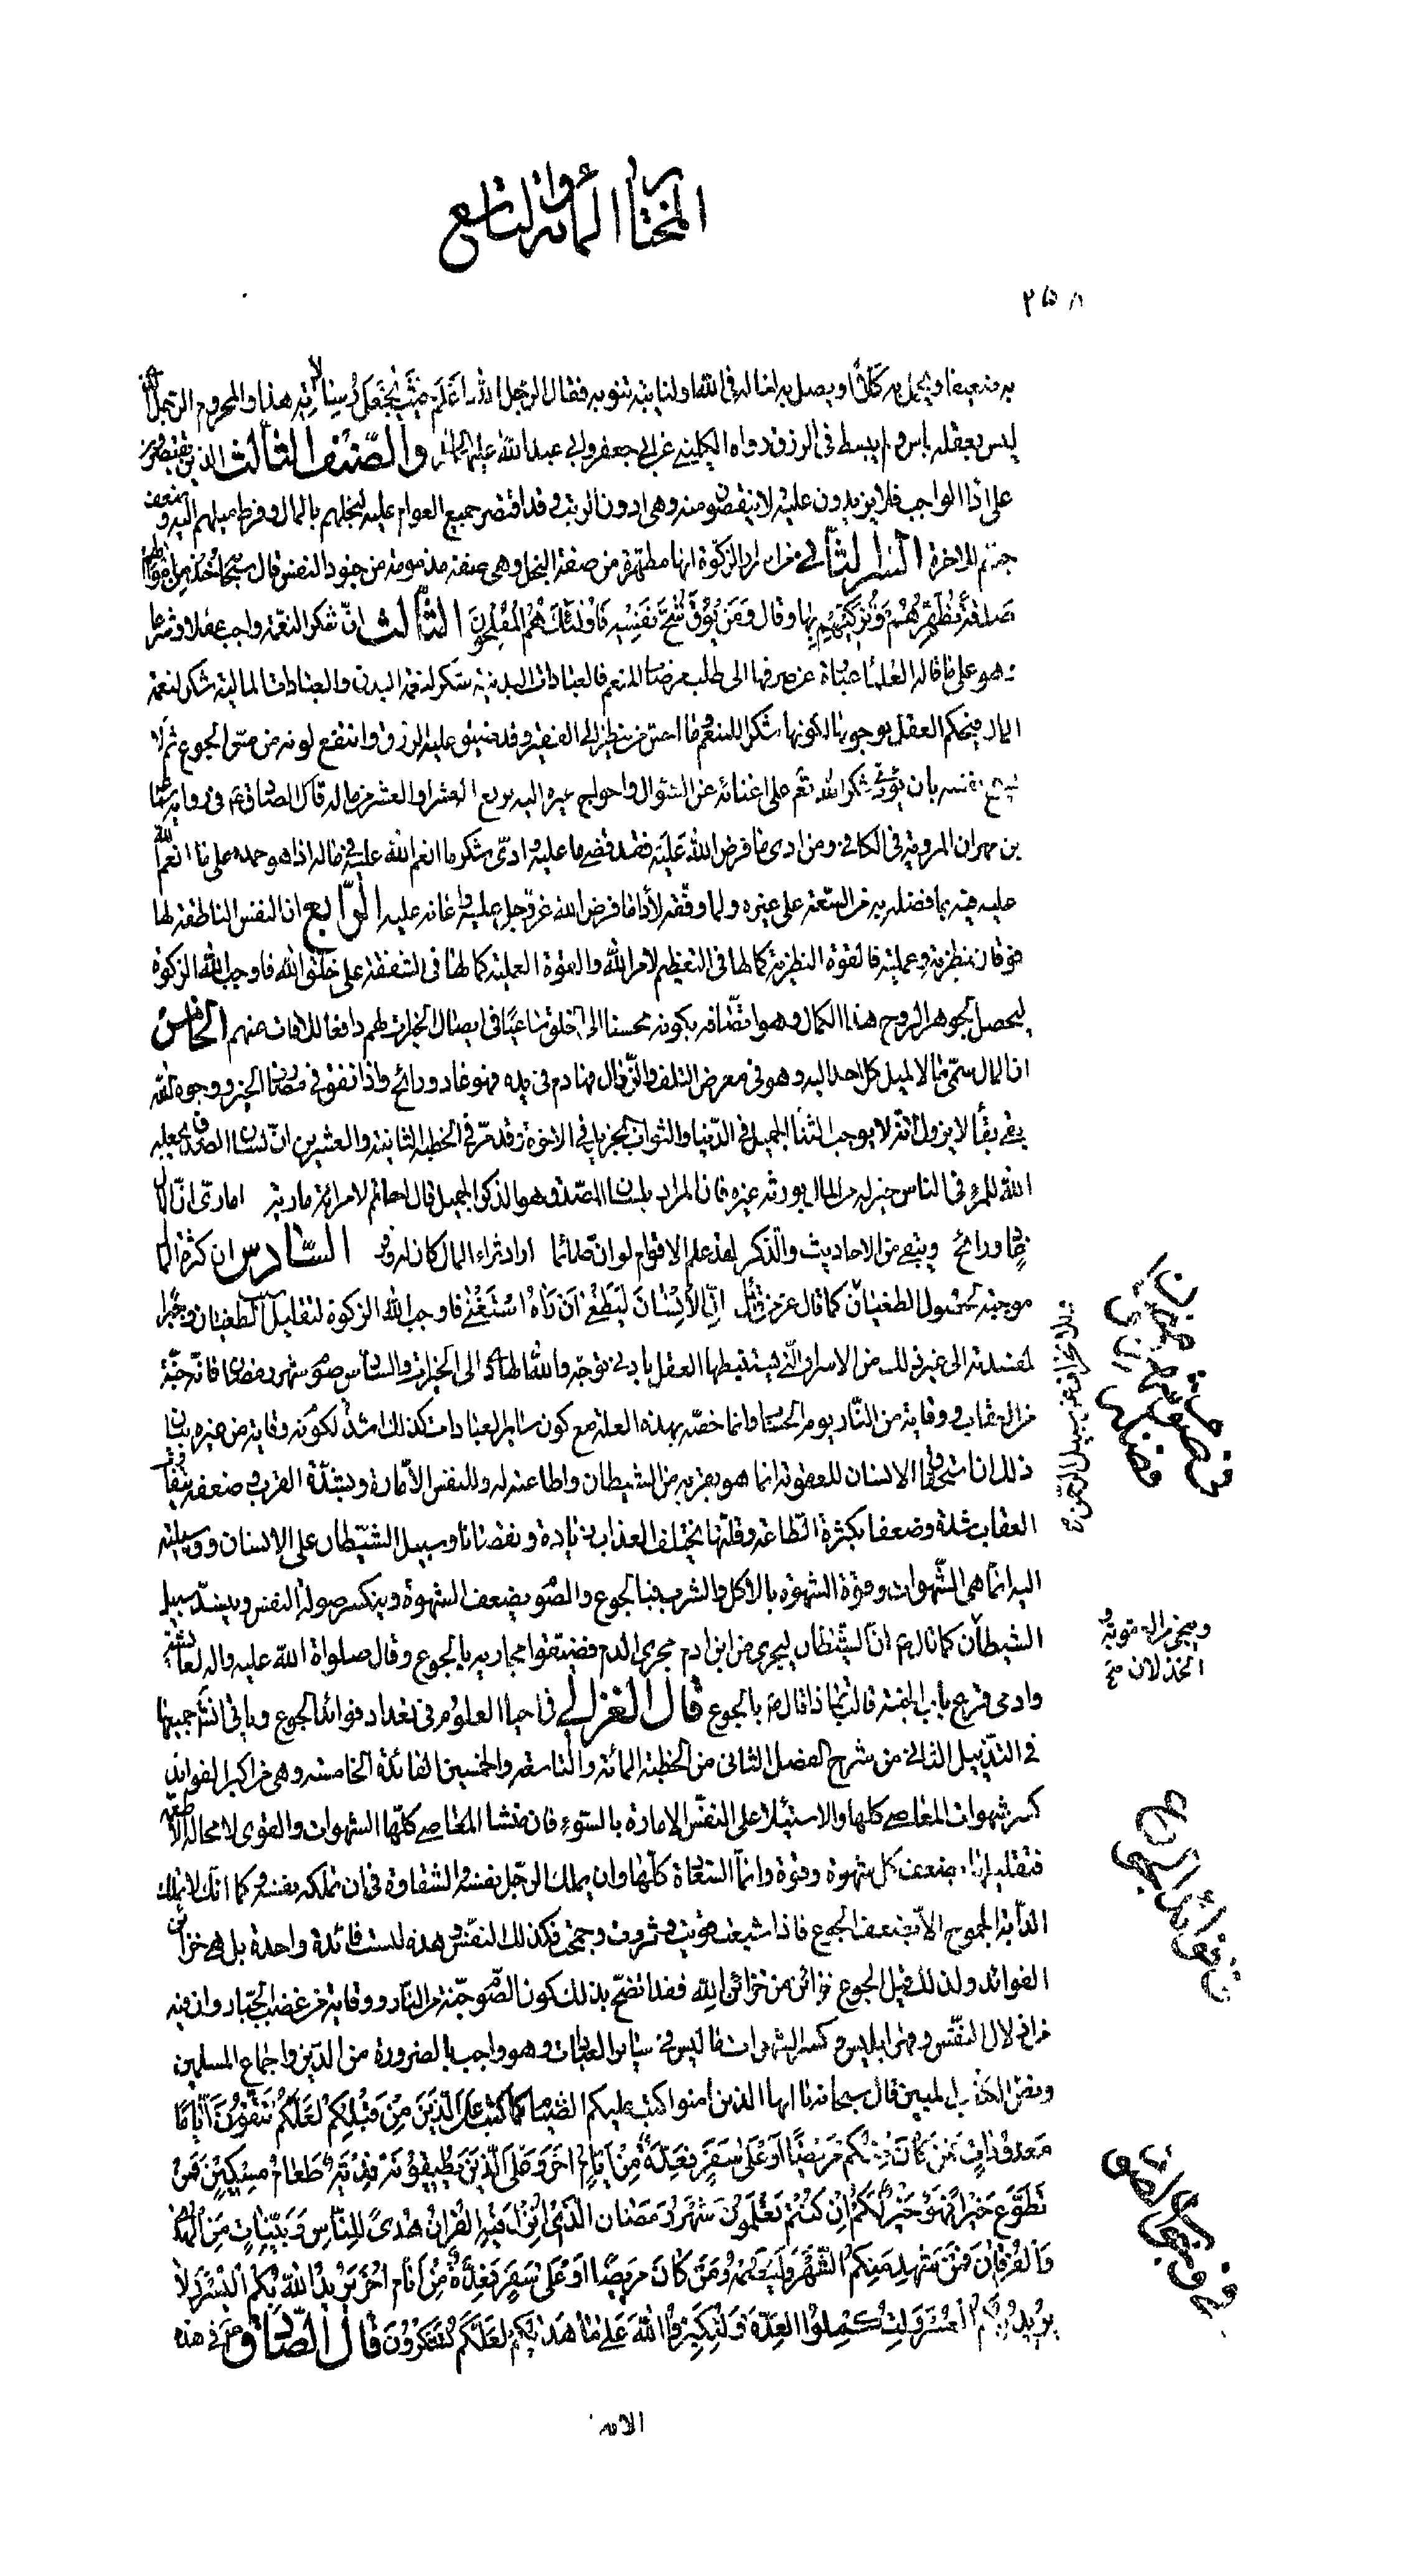 المختار المائة والتاسع
٢٥٨
به ضعيفا ويحمل به كلا أو يصل به أخا له في الله أو لنائبة تنوبه فقال الرجل الله أعلم حيث يجعل رسالاته هذا والمحروم الرجل الذي
ليس بعقله باس ولم يبسط في الرزق رواه الكليني عن أبي جعفر وأبي عبد الله عليهما السلام والصنف الثالث الذين يقتصرون
على أداء الواجب فلا يزيدون عليه ولا ينقصون منه وهي أدون الرتب وقد اقتصر جميع العوام عليه لبخلهم بالمال وفرط ميلهم إليه وضعف
حبهم للآخرة السر الثاني من أسرار الزكوة أنها مطهرة من صفة البخل وهي صفة مذمومة من جنود النفس قال سبحانه خُذْ مِنْ أَمْوالِهِمْ
صَدَقَةً تُطَهِّرُهُمْ وَتُزَكِّيهِمْ بِها وقال وَمَنْ يُوقَ شُحَّ نَفْسِهِ فَأُولئِكَ هُمُ الْمُفْلِحُونَ الثالث ان شكر النعمة واجب عقلا وشرعا
وهو على ما قاله العلماء عبارة عن صرفها إلى طلب مرضات المنعم فالعبادات البدنية شكر لنعمة البدن والعبادات المالية شكر لنعمة
المال فيحكم العقل بوجوبها لكونها شكرا للمنعم وما أخس من ينظر إلى الفقير وقد ضيق عليه الرزق وانتقع لونه من مس الجوع ثم لا
تسمح نفسه بان يؤدي شكر الله تعالى على اغنائه عن السؤال واحواج غيره إليه بربع العشر أو العشر من ماله قال الصادق ع في رواية سماعة
بن مهران المروية في الكافي ومن ادى ما فرض الله عليه فقد قضى ما عليه وادّى شكر ما انعم الله عليه في ماله اذا هو حمده على ما انعم الله
عليه فيه بما فضله به من السعة على غيره ولما وفقه لأداء ما فرض الله عز وجل عليه واعانه عليه الرابع ان النفس الناطقة لها
قوتان نظرية وعملية فالقوة النظرية كمالها في التعظيم لامر الله والقوة العملية كمالها في الشفقة على خلق الله فاوجب الله الزكوة
ليحصل لجوهر الروح هذا الكمال وهو اتصافه بكونه محسنا الى الخلق ساعيا في ايصال الخيرات لهم دافعا للافات عنهم الخامس
ان المال سمّي مالا لميل كل احد اليه وهو في معرض التلف والزوال مادام في يده فهو غاد ورائح واذا انفق في مصارف الخير ووجوه البر
بقي بقاء لا يزول لانه يوجب الثناء الجميل في الدنيا والثواب الجزيل في الاخرة وقد مرّ في الخطبة الثانية والعشرين انّ لسان الصدق يجعله
الله للمرء في الناس خير له من المال يورثه غيره فان المراد بلسان الصدق هو الذكر الجميل قال حاتم لامرأته مارية اماوي ان المال
غاد ورائح ويبقى من الاحاديث والذكر لقد علم الاقوام لو ان حاتما اراد ثراء المال كان له وفر السادس ان كثرة المال
موجبة لحصول الطغيان كما قال عز من قائل إِنَّ الْإِنْسانَ لَيَطْغى أَنْ رَآهُ اسْتَغْنى فاوجب الله الزكوة لتقليل سبب الطغيان وجبرا
لمفسدته الى غير ذلك من الاسرار التي يستنبطها العقل بادنى توجه والله الهادي الى الخيرات والسادس صوم شهر رمضان فانه جنة
من العقاب ووقاية من النار يوم الحساب وانما خصه بهذه العلة مع كون ساير العبادات كذلك لشدة كونه وقاية من غيره بيان
ذلك ان استحقاق الانسان للعقوبة انما هو بقربه من الشيطان واطاعته له وللنفس الامارة وبشدة القرب وضعفه يتفاوت
العقاب شدة وضعفا وبكثرة الطاعة وقلتها يختلف العذاب زيادة ونقصانا وسبيل الشيطان على الانسان ووسيلته
اليه انما هي الشهوات وقوة الشهوة بالاكل والشرب فبالجوع والصوم يضعف الشهوة وينكسر صولة النفس وينسد سبيل
الشيطان كما قال ص ان الشيطان ليجري من ابن ادم مجرى الدم فضيقوا مجاريه بالجوع وقال صلوات الله عليه واله لعائشة
داومي قرع باب الجنة قالت بماذا قال ص بالجوع قال الغزالي في احياء العلوم في تعداد فوائد الجوع وياتي انشاء جميعها
في التذييل الذي من شرح الفصل الثاني من الخطبة المائة والتاسعة والخمسين الفائدة الخامسة وهي من اكبر الفوائد
كسر شهوات المعاصي كلها والاستيلاء على النفس الامارة بالسوء فان منشا المعاصي كلها الشهوات والقوى لا محالة الاطعمة
فتقليلها يضعف كل شهوة وقوة وانما السعادة كلها ان يملك الرجل نفسه والشقاوة في ان تملكه نفسه وكما انك لا تملك
الدابة الجموح الا بضعف الجوع فاذا شبعت قويت وشردت وجمحت فكذلك النفس وهذه ليست فائدة واحدة بل هي خزائن
الفوائد ولذلك قيل الجوع خزانة من خزائن الله فقد اتضح بذلك كون الصوم جنة من النار ووقاية من غضب الجبار وان فيه
من اذلال النفس وقهر ابليس وكسر الشهوات ما ليس في سائر العبادات وهو واجب بالضرورة من الدين واجماع المسلمين
ونص الكتاب المبين قال سبحانه يا ايها الذين امنوا كتب عليكم الصيام كَما كُتِبَ عَلَى الَّذِينَ مِنْ قَبْلِكُمْ لَعَلَّكُمْ تَتَّقُونَ أَيّاماً
مَعْدُوداتٍ فَمَنْ كانَ مِنْكُمْ مَرِيضاً أَوْ عَلى سَفَرٍ فَعِدَّةٌ مِنْ أَيّامٍ أُخَرَ وَعَلَى الَّذِينَ يُطِيقُونَهُ فِدْيَةٌ طَعامُ مِسْكِينٍ فَمَنْ
تَطَوَّعَ خَيْراً فَهُوَ خَيْرٌ لَهُ وَأَنْ تَصُومُوا خَيْرٌ لَكُمْ إِنْ كُنْتُمْ تَعْلَمُونَ شَهْرُ رَمَضانَ الَّذِي أُنْزِلَ فِيهِ الْقُرْآنُ هُدىً لِلنّاسِ وَبَيِّناتٍ مِنَ الْهُدى
وَالْفُرْقانِ فَمَنْ شَهِدَ مِنْكُمُ الشَّهْرَ فَلْيَصُمْهُ وَمَنْ كانَ مَرِيضاً أَوْ عَلى سَفَرٍ فَعِدَّةٌ مِنْ أَيّامٍ أُخَرَ يُرِيدُ اللهُ بِكُمُ الْيُسْرَ وَلا
يُرِيدُ بِكُمُ الْعُسْرَ وَلِتُكْمِلُوا الْعِدَّةَ وَلِتُكَبِّرُوا اللهَ عَلى ما هَداكُمْ وَلَعَلَّكُمْ تَشْكُرُونَ قال الصادق ع في هذه
الاية
في صوم شهر رمضان وفضله
في فوائد الجوع
في وجوب الصوم